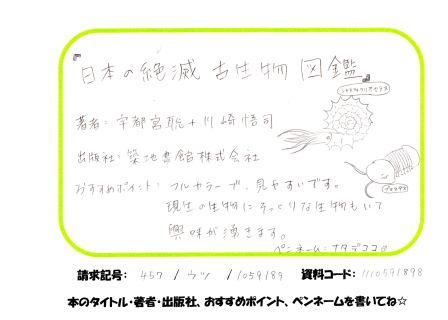 『日本の絶滅古生物図鑑』
著者：宇都宮聡＋川崎悟司
出版社：築地書館株式会社
おすすめポイント：フルカラーで、見やすいです。
現生の生物にそっくりな生物もいて
興味が湧きます。
ペンネーム：ナタデココ☆
請求記号： 457 / ウツ / 1059189 資料コード： 1110591898
本のタイトル・著者・出版社、おすすめポイント、ペンネームを書いてね☆